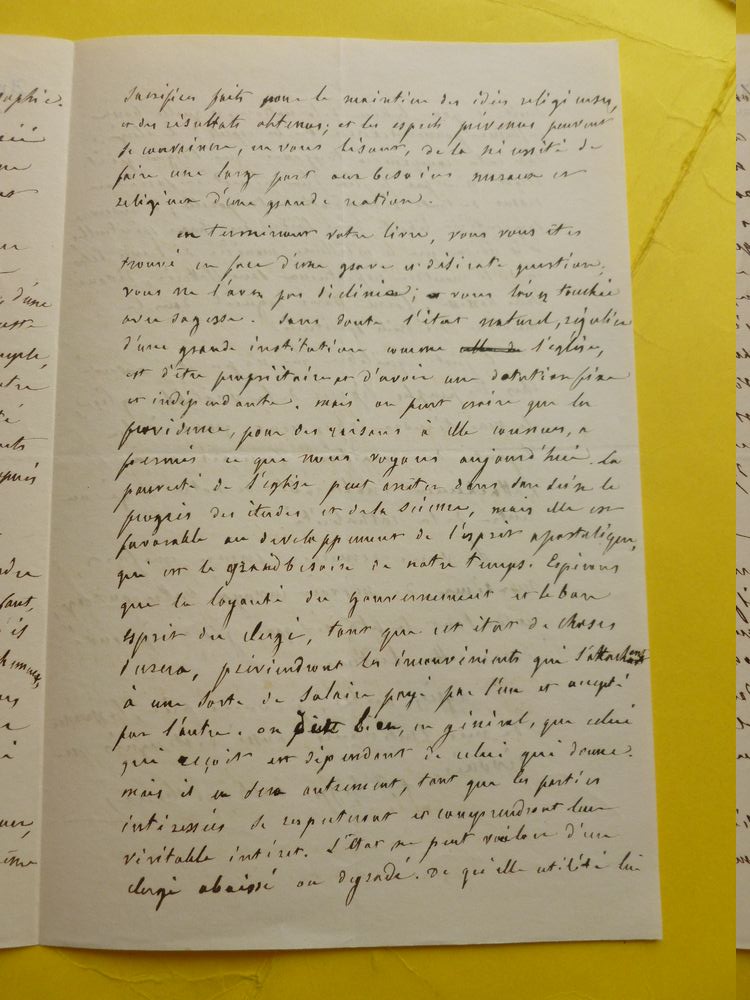 sacrifices faits pour le maintien des idées religieuses,
et des résultats obtenus; et les esprits prévenus peuvent
se convaincre, en vous lisant, de la nécessité de
faire une large part aux besoins moraux et
religieux d'une grande nation.
en terminant votre livre, vous vous êtes
trouvé en face d'une grave et délicate question;
vous ne l'avez pas déclinée; vous l'avez touchée
avec sagesse. Sans doute l'état naturel, régulier
d'une grande institution comme l'église,
est d'être propriétaire et d'avoir une dotation fixe
et indépendante. mais on peut croire que la
providence, pour des raisons à elle connues, a
permis ce que nous voyons aujourd'hui. la
pauvreté de l'église peut arrêter dans son sein le
progrès des études et de la science, mais elle est
favorable au développement de l'esprit apostolique,
qui est le grand besoin de notre temps. Espérons
que la loyauté du gouvernement et le bon
esprit du clergé, tant que cet état de choses
durera, préviendront les inconvénients qui s'attachent
à une sorte de salaire payé par l'un et accepté
par l'autre. on dit bien, en général, que celui
qui reçoit est dépendant de celui qui donne.
mais il en sera autrement, tant que les parties
intéressées se respecteront et comprendront leur
véritable intérêt. L'État ne peut vouloir d'un
clergé abaissé ou dégradé. De quelle utilité lui